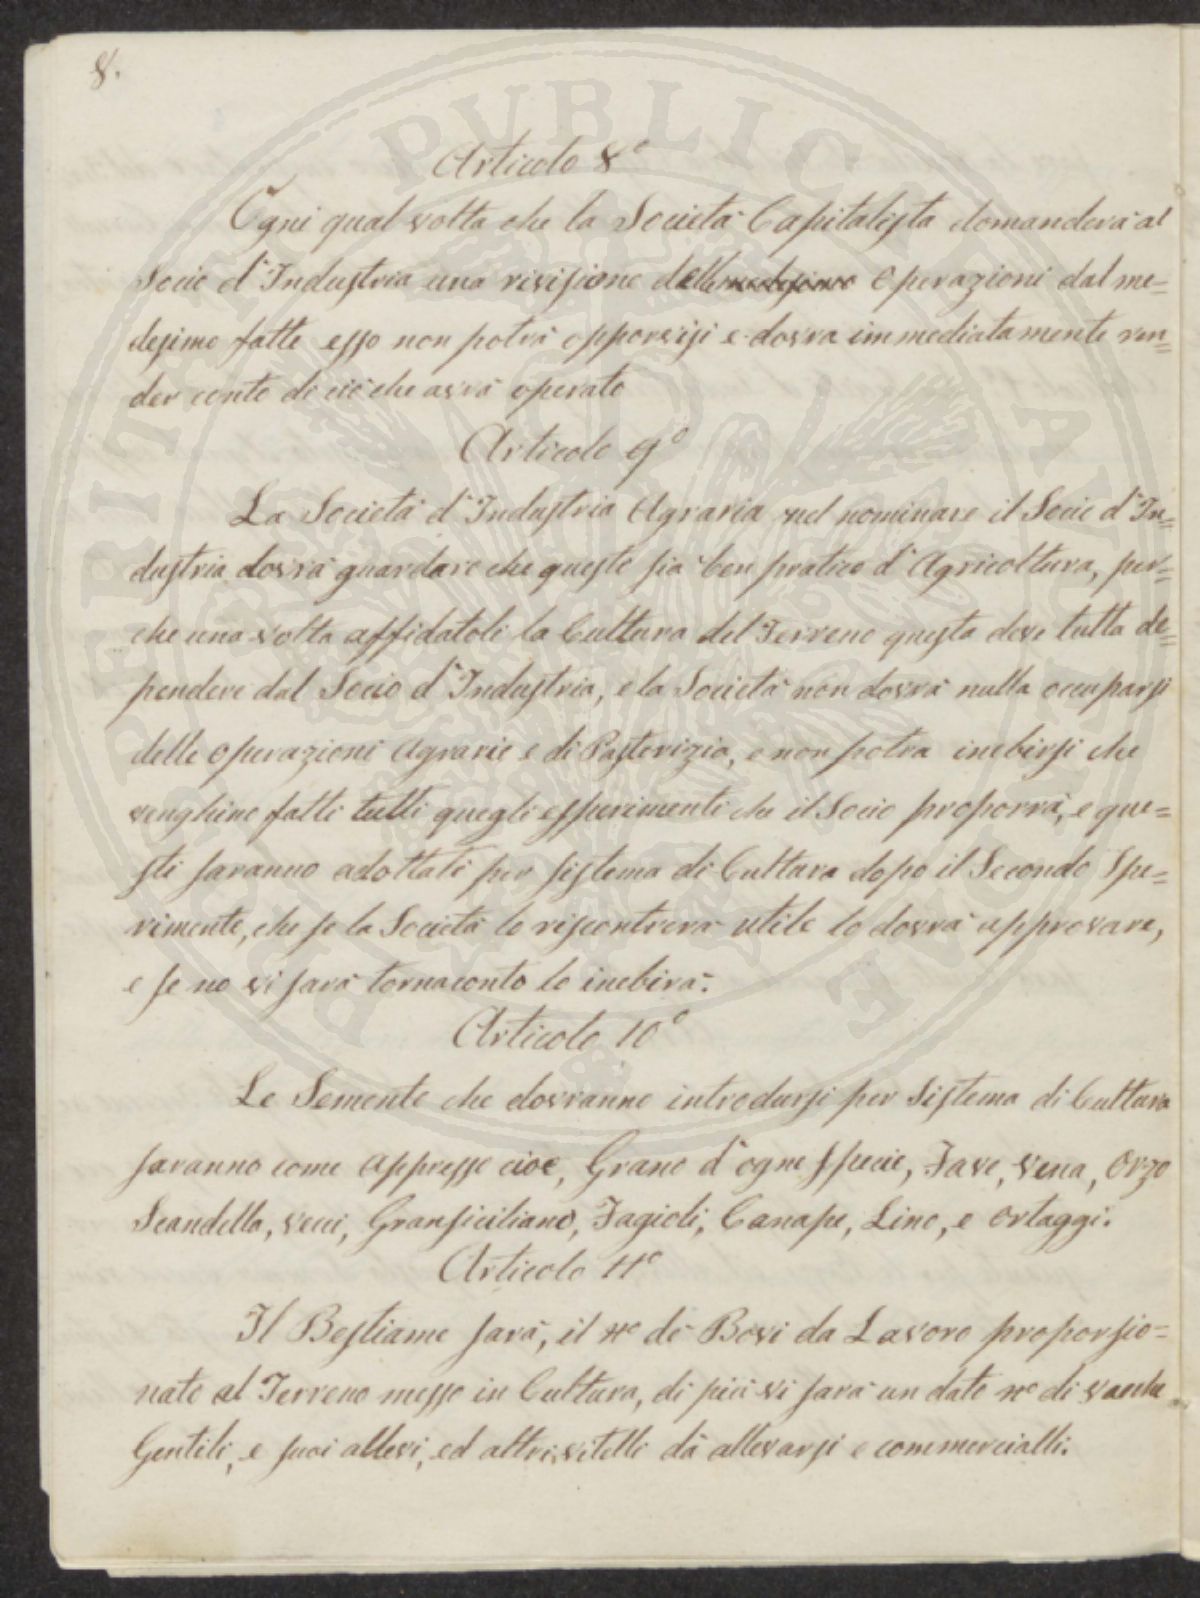 8.
Articolo 8º
Ogni qual volta che la Società Capitalista domanderà al
Socio d'Industria una revisione delle medesime Operazioni dal me=
desimo fatte esso non potrà opporvisi e dovra immediatamente ren=
der conto di ciò che avrà operato
Articolo 9º
La Società d'Industria Agraria nel nominare il Socio d'In=
dustria dovrà guardare che questo sia ben pratico d'Agricoltura, per=
che una volta affidatoli la Cultura del Terreno questa deve tutta de=
pendere dal Socio d'Industria, e la Società non dovrà nulla occuparsi
delle Operazioni Agrarie e di Pastorizia, e non potra inebirsi che
venghino fatti tutti quegli esperimenti che il Socio proporrà, e que=
sti saranno adottati per sistema di Cultura dopo il Secondo Spe=
rimento, che se la Società lo riscontrerà utile lo dovrà approvare,
e se no vi sarà tornaconto lo inebirà.
Articolo 10º
Le Semente che dovranno introdursi per Sistema di Cultura
saranno come appresso cioe, Grano d'ogne specie, Fave, Vena, Orzo
Scandella, Vecci, Gransiciliano, Fagioli, Canape, Lino, e Ortaggi.
Articolo 11º
Il Bestiame sarà, il nº di Bovi da Lavoro proporsio=
nato al Terreno messo in Cultura, di più vi sarà un dato nº di Vacche
Gentili, e suoi allevi, ed altri vitelli dà allevarsi e commercialli.
PERITI PUBLICE AVCTORITATE